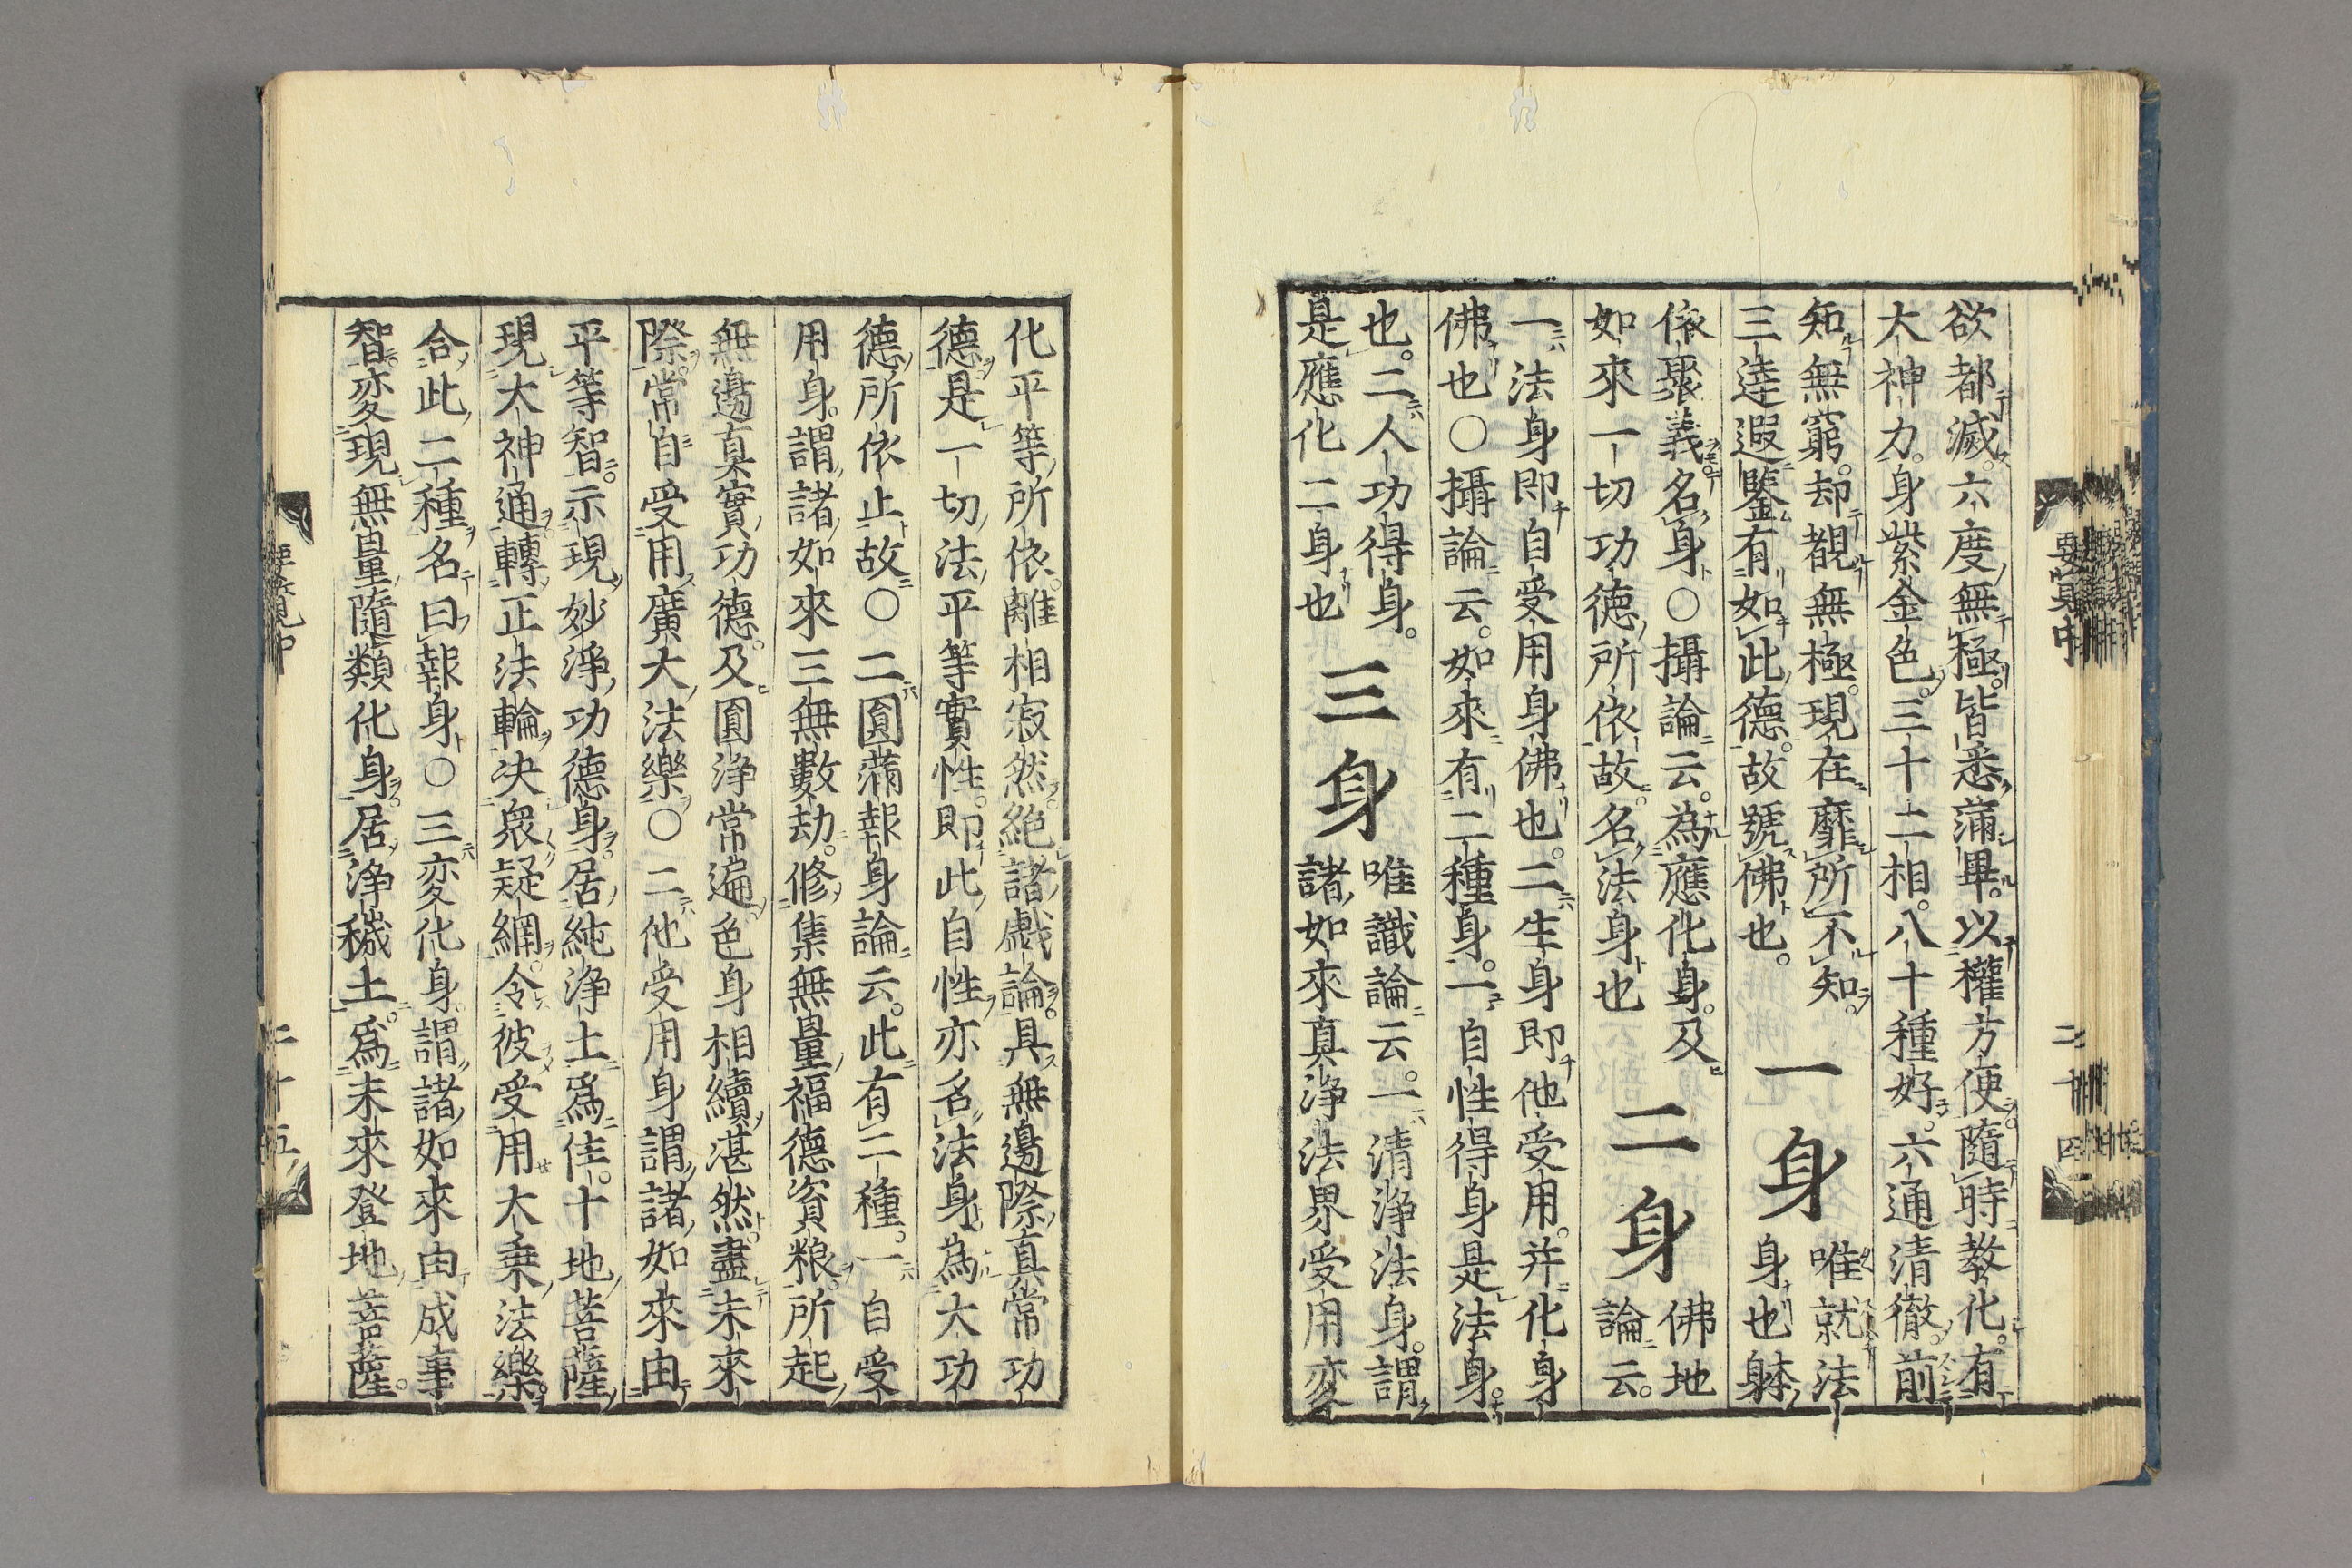 欲都滅。六度無極。皆悉蒲畢。以權方便隨時教化。有
大神力。身紫金色。三十二相。八十種好。六通清徹。前
知無窮。却覩無極。現在靡所不知。
一身
唯就法
三達遐鑒有如此德。故號佛也。
身也躰
依聚義名身〇攝論云。為應化身。及
二身
佛地
如來一切功德所依故名法身也
論云。
一法身即自受用身佛也。二生身即他受用。并化身
佛也〇攝論云。如來有二種身。一自性得身是法身。
也。二人功得身。
是應化二身也
三身
唯識論云。一清淨法身。謂
諸如來真淨法界受用変
化平等所依。離相寂然。絶諸戯論。具無邊際真常功
德。是一切法平等實性。即此自性亦名法身為大功
德所依止故〇二圓蒲報身論云。此有二種。一自受
用身。謂諸如來三無數劫。修集無量福德資粮。所起
無邊真實功德。及圓淨常遍色身相續湛然。盡未來
際。常自受用廣大法樂〇二他受用身謂諸如來由
平等智。示現妙淨功德身。居純淨土爲住。十地菩薩
現大神通。轉正法輪決衆疑網。令彼受用大乗法樂。
合此二種名曰報身〇三変化身。謂諸如來由成事
智。変現無量隨類化身。居淨穢土。爲未來登地菩薩。
要覧中
二十四
二十五